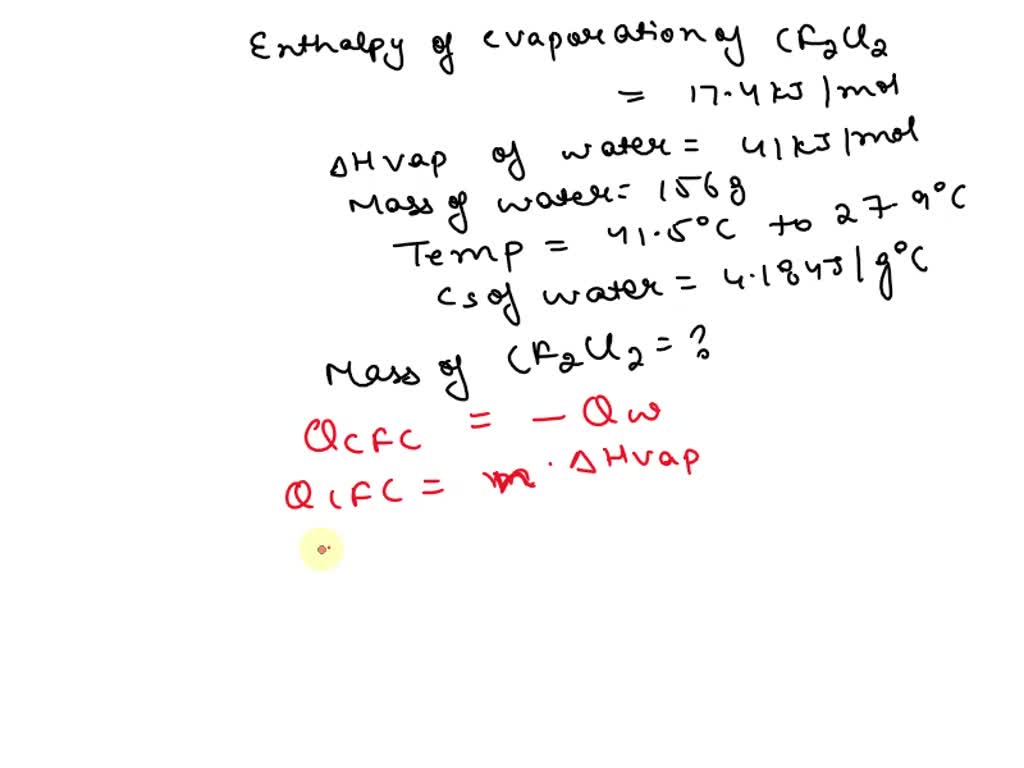 Enthalpy of evaporation of CF2Cl2
= 17.4 kJ/mol
ΔHvap of water = 41 kJ/mol
Mass of water = 156g
Temp = 41.5°C to 27.9°C
Cs of water = 4.184J/g°C
Mass of CF2Cl2 = ?
QCFC = - Qw
QCFC = m · ΔHvap